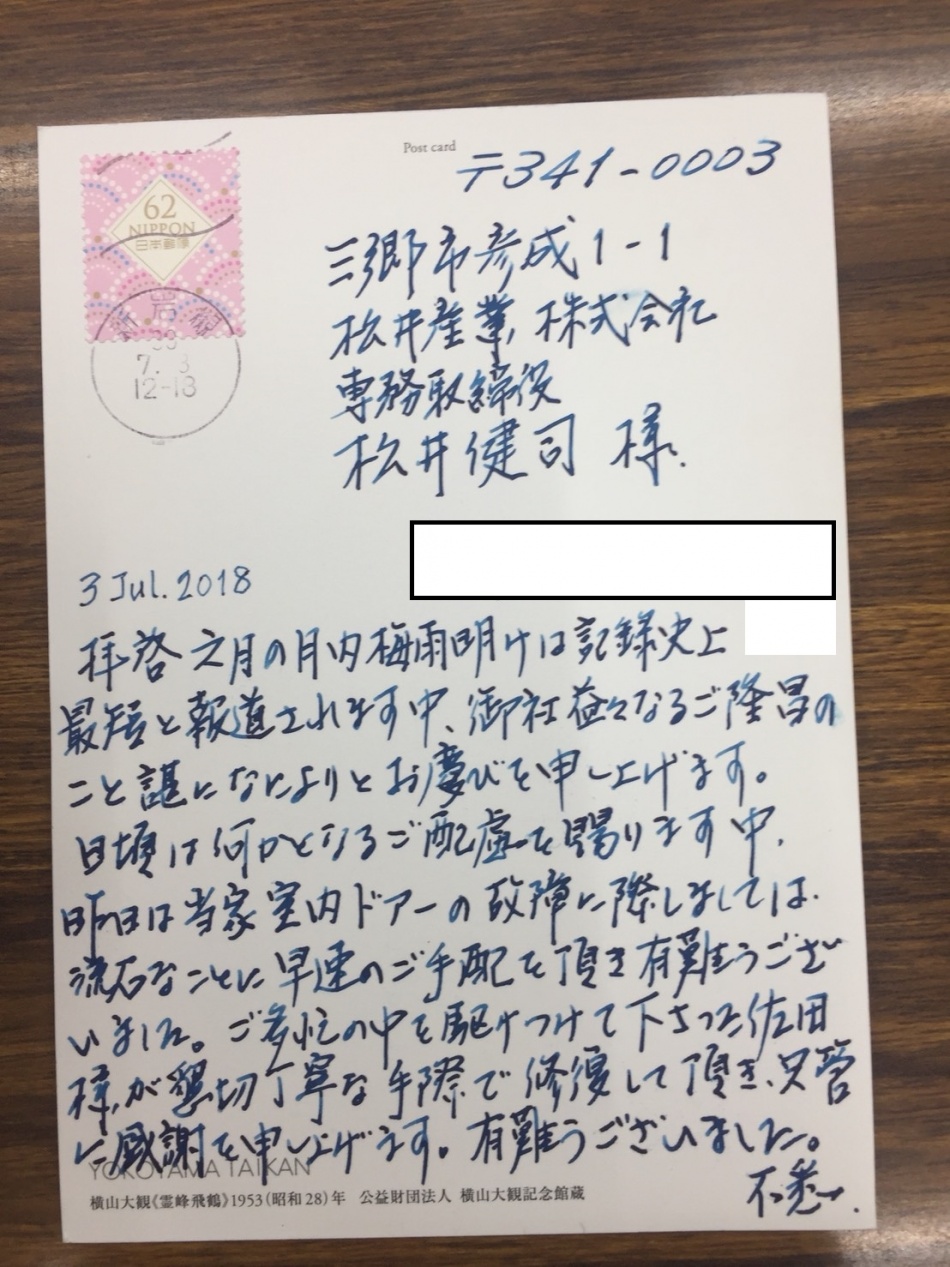 Post card
〒341-0003
62
NIPPON
日本郵便
三郷市彦成1-1
松井産業株式会社
専務取締役
松井健司 様
新岩槻
30
7. 3
12-18
3 Jul. 2018
拝啓 六月の月内梅雨明けは記録史上
最短と報道されます中、御社益々なるご隆昌の
こと謹になによりとお慶びを申し上げます。
日頃は何かとなるご配慮を賜ります中、
昨日は当家室内ドアーの故障に際しましては、
流石なことに早速のご手配を頂き有難うござ
いました。ご多忙の中を駆けつけて下さった佐田
様が懇切丁寧な手際で修復して頂き、只管
に感謝を申し上げます。有難うございました。
不悉
YOKOYAMA TAIKAN
横山大観《霊峰飛鶴》1953(昭和28)年 公益財団法人 横山大観記念館蔵